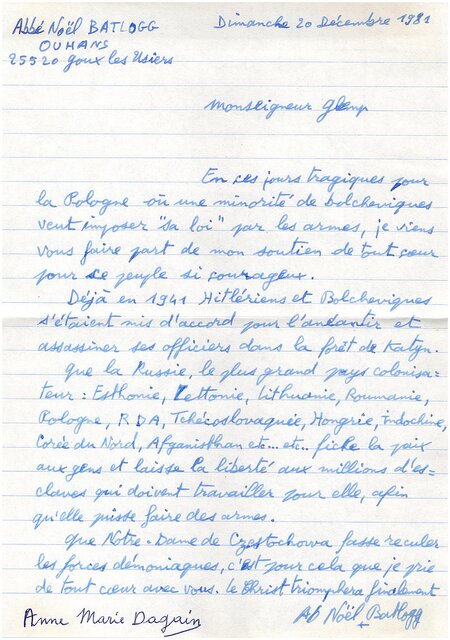 Abbé Noël BATLOGG
OUHANS
25520 Goux les Usiers
Dimanche 20 Décembre 1981
Monseigneur Glemp
En ces jours tragiques pour
la Pologne où une minorité de bolcheviques
veut imposer "sa loi" par les armes, je viens
vous faire part de mon soutien de tout cœur
pour ce peuple si courageux.
Déjà en 1941 Hitlériens et Bolcheviques
s'étaient mis d'accord pour l'anéantir et
assassiner ses officiers dans la forêt de Katyn.
que la Russie, le plus grand pays colonisa-
teur : Esthonie, Lettonie, Lithuanie, Roumanie,
Pologne, RDA, Tchécoslovaquée, Hongrie, Indochine,
Corée du Nord, Afganisthan etc... etc.. fiche la paix
aux gens et laisse la liberté aux millions d'es=
claves qui doivent travailler pour elle, afin
qu'elle puisse faire des armes.
que Notre-Dame de Częstochowa fasse reculer
les forces démoniaques, c'est pour cela que je prie
de tout cœur avec vous. Le Christ triomphera finalement
Anne Marie Dagain
Ab Noël Batlogg